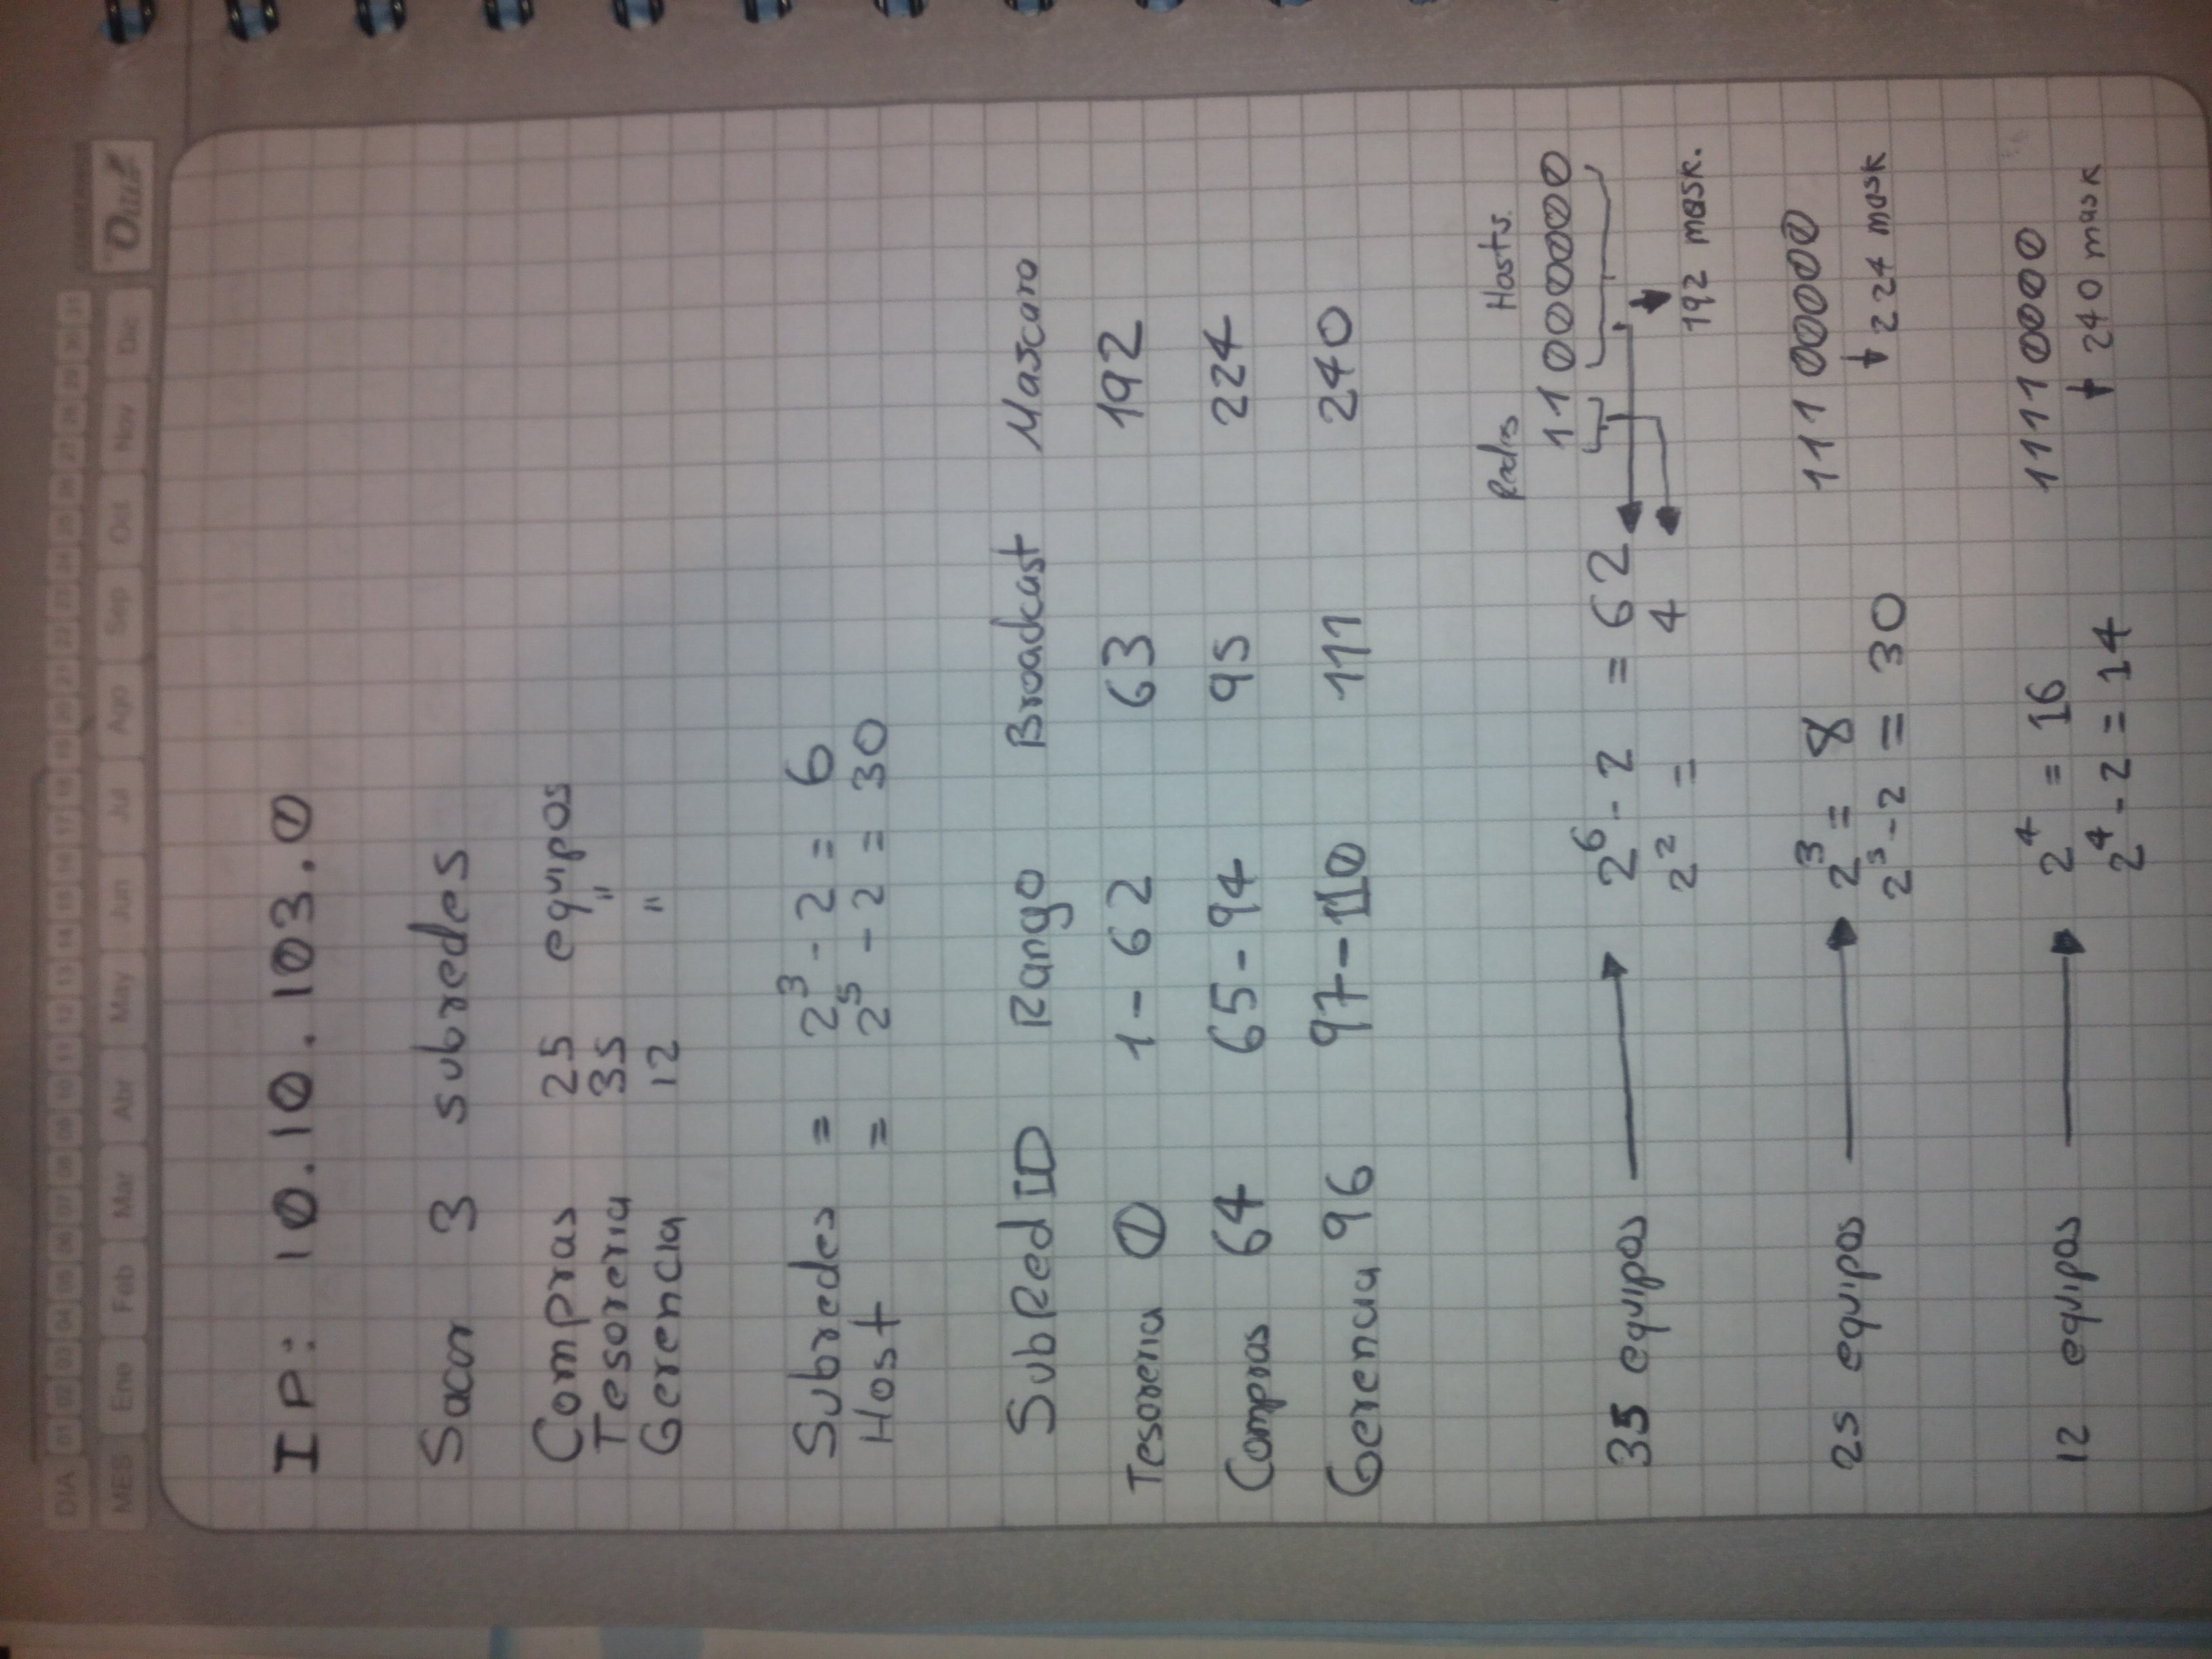 DIA 01 02 03 04 05 06 07 08 09 10 11 12 13 14 15 16 17 18 19 20 21 22 23 24 25 26 27 28 29 30 31
MES Ene Feb Mar Abr May Jun Jul Ago Sep Oct Nov Dic
IP: 10.10.103.0
Sacar 3 subredes
Compras 25 equipos
Tesoreria 35 "
Gerencia 12 "
Subredes = 2³ - 2 = 6
Host = 2⁵ - 2 = 30
SubRed ID Rango Broadcast Mascara
Tesoreria 0 1-62 63 192
Compras 64 65-94 95 224
Gerencia 96 97-110 111 240
Redes Hosts
11 000000
35 equipos → 2⁶ - 2 = 62
2² = 4
192 mask.
25 equipos → 2³ = 8 111 00000
2⁵ - 2 = 30 224 mask
12 equipos → 2⁴ = 16 1111 0000
2⁴ - 2 = 14 240 mask